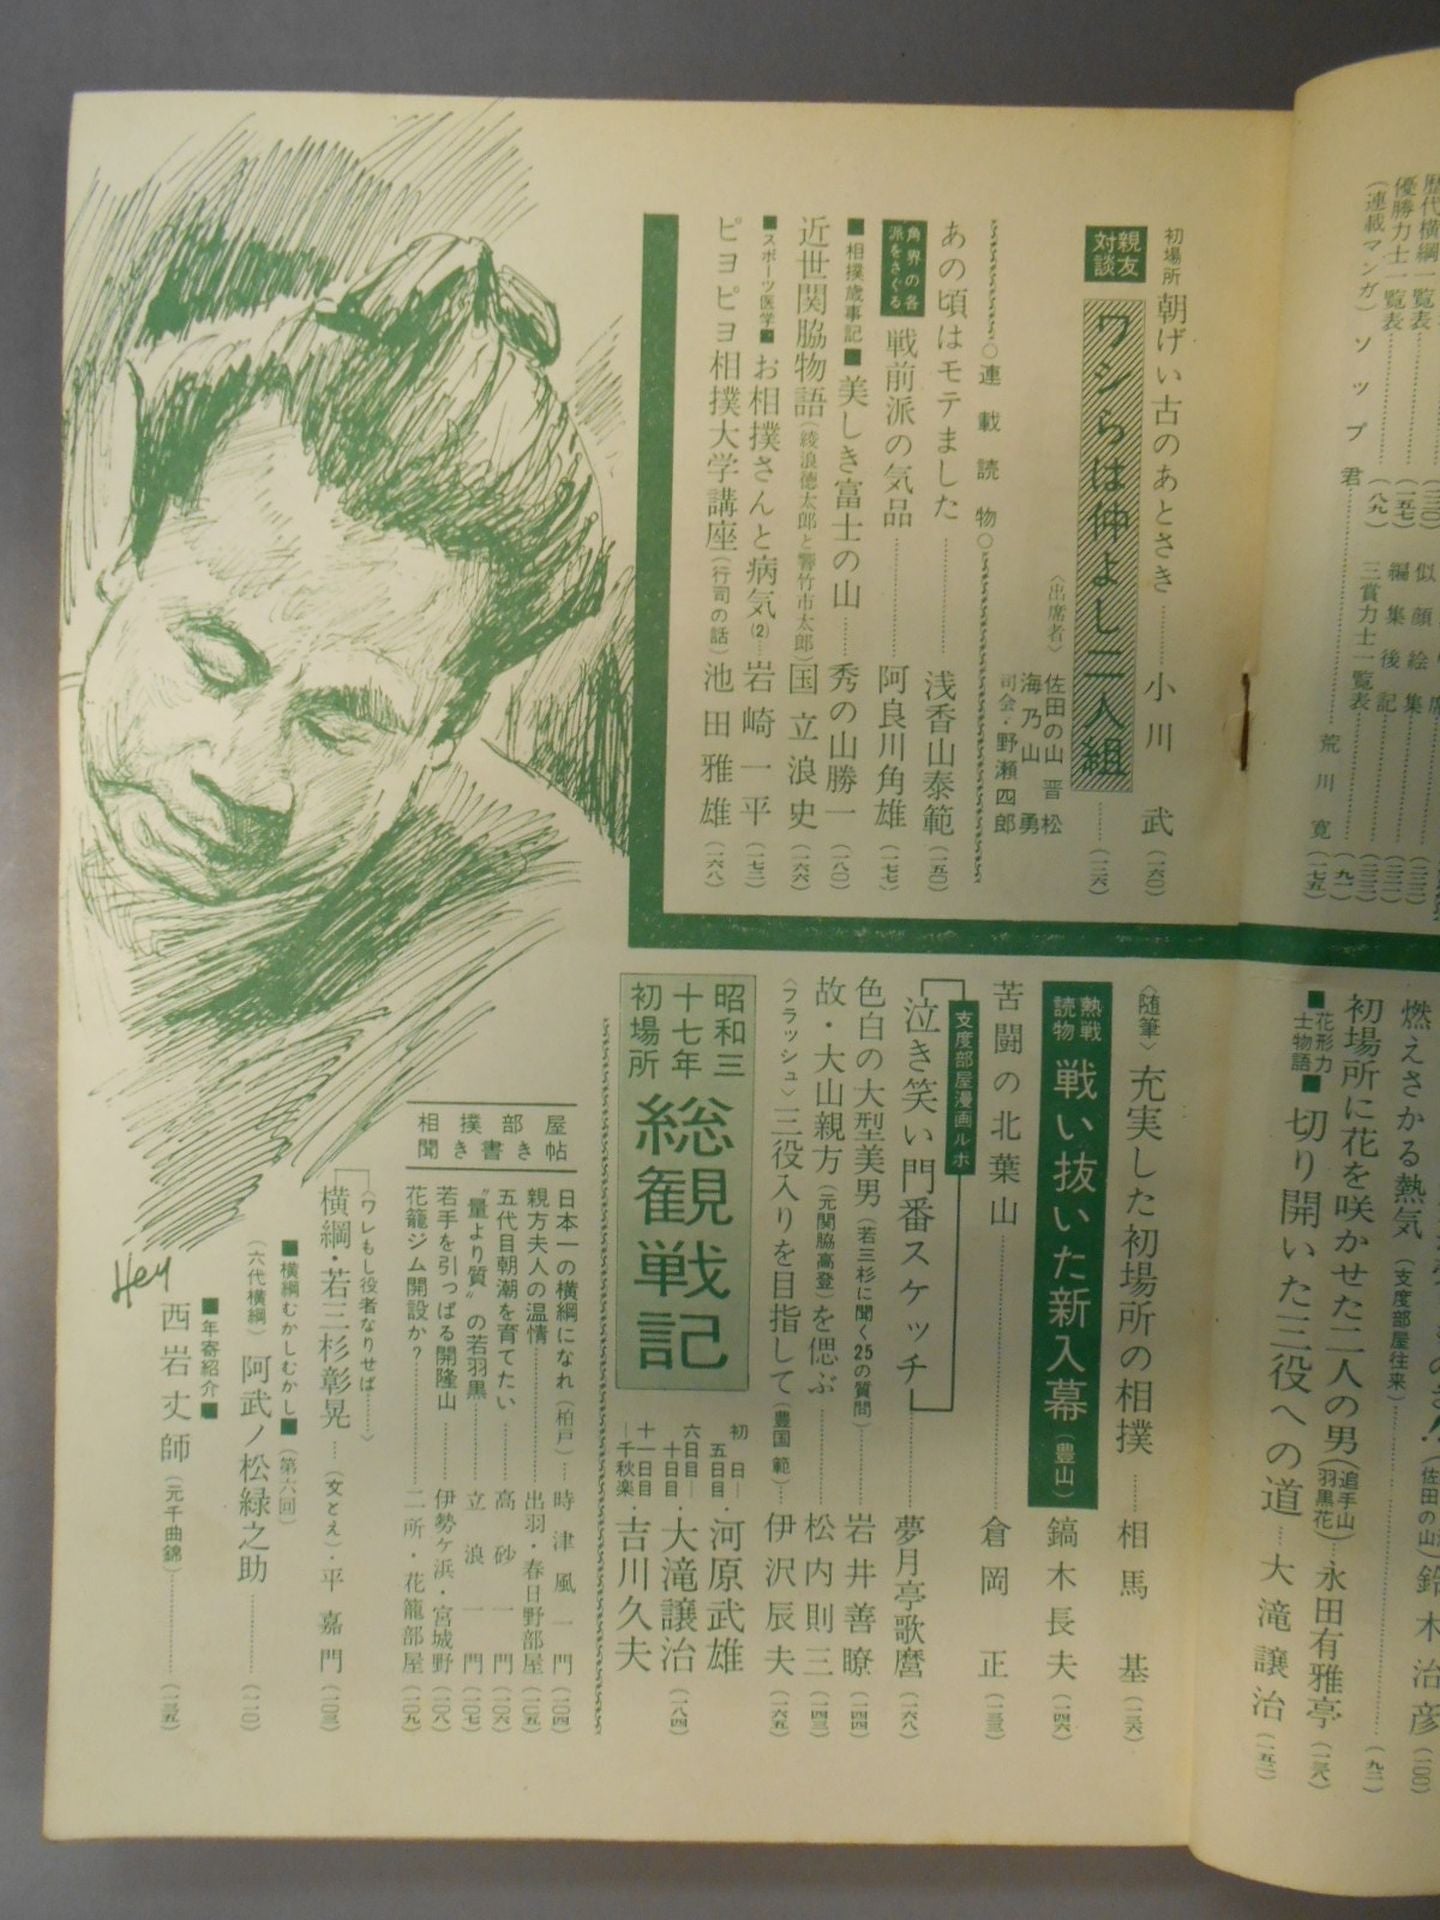 歴代横綱一覧表
優勝力士一覧表……(一五七)
(連載マンガ)ソップ君……荒川寛(一七五)
編集後記
三賞力士一覧表
初場所 朝げい古のあとさき……小川武(一六〇)
親友対談
ワシらは仲よし二人組……(一二六)
〈出席者〉
佐田の山晋松
海乃山勇
司会・野瀬四郎
○連載読物○
あの頃はモテました……浅香山泰範(一五〇)
角界の各派をさぐる
戦前派の気品……阿良川角雄(一七七)
■相撲歳事記■ 美しき富士の山……秀の山勝一(一八〇)
近世関脇物語(綾浪徳太郎と響竹市太郎)国立浪史(一六六)
■スポーツ医学■ お相撲さんと病気(2)…岩崎一平(一七二)
ピヨピヨ相撲大学講座(行司の話)池田雅雄(一六八)
燃えさかる熱気(支度部屋往来)……(九二)
初場所に花を咲かせた二人の男(追手山 羽黒花)…永田有雅亭(一三八)
■花形力士物語■ 切り開いた三役への道…大滝譲治(一五二)
〈随筆〉充実した初場所の相撲……相馬基(一三六)
熱戦読物 戦い抜いた新入幕(豊山)鏑木長夫(一四六)
苦闘の北葉山……倉岡正(一三三)
支度部屋漫画ルポ
泣き笑い門番スケッチ……夢月亭歌麿(一六八)
色白の大型美男(若三杉に聞く25の質問)……岩井善暸(一四四)
故・大山親方(元関脇高登)を偲ぶ……松内則三(一四三)
〈フラッシュ〉三役入りを目指して(豊国範)…伊沢辰夫(一六五)
昭和三十七年初場所
総観戦記
初日―五日目・河原武雄
六日目―十日目・大滝譲治(一八四)
十一日目―千秋楽・吉川久夫
相撲部屋聞き書き帖
日本一の横綱になれ(柏戸)…時津風一門(一〇四)
親方夫人の温情……出羽・春日野部屋(一〇五)
五代目朝潮を育てたい……高砂一門(一〇六)
〝量より質〟の若羽黒……立浪一門(一〇七)
若手を引っぱる開隆山……伊勢ケ浜・宮城野(一〇八)
花籠ジム開設か?……二所・花籠部屋(一〇九)
〈ワレもし役者なりせば……〉
横綱・若三杉彰晃…(文とえ)・平嘉門(一〇三)
■横綱むかしむかし■(第六回)
(六代横綱)阿武ノ松緑之助……(一一〇)
■年寄紹介■
西岩丈師(元千曲錦)……(一三五)
Hey